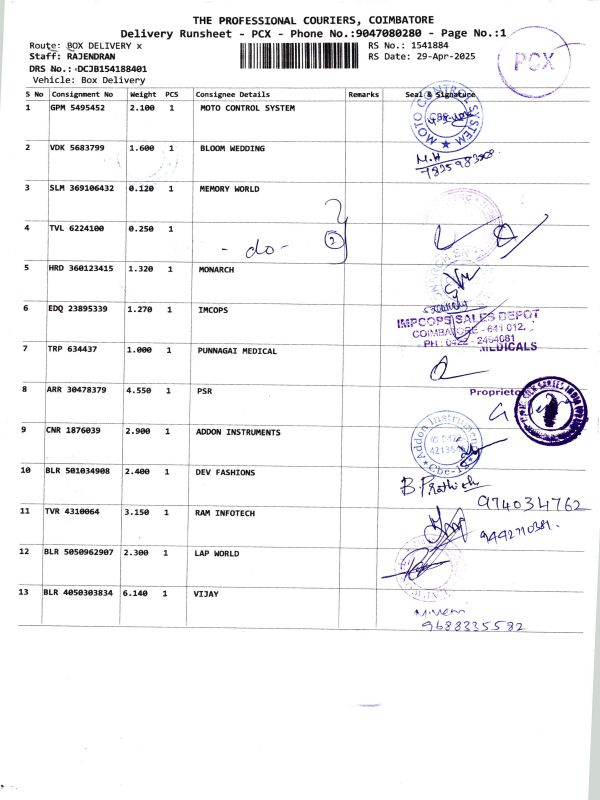 THE PROFESSIONAL COURIERS, COIMBATORE
Delivery Runsheet - PCX - Phone No.:9047080280 - Page No.:1
Route: BOX DELIVERY x
RS No.: 1541884
Staff: RAJENDRAN
RS Date: 29-Apr-2025
DRS No.:-DCJB154188401
Vehicle: Box Delivery
PCX
S No Consignment No Weight PCS Consignee Details Remarks Seal & Signature
1 GPM 5495452 2.100 1 MOTO CONTROL SYSTEM
MOTO CONTROL SYSTEM
2 VDK 5683799 1.600 1 BLOOM WEDDING
3 SLM 369106432 0.120 1 MEMORY WORLD
4 TVL 6224100 0.250 1 - do - 2
5 HRD 360123415 1.320 1 MONARCH
6 EDQ 23895339 1.270 1 IMCOPS
IMPCOPS SALES DEPOT
COIMBATORE - 641 012.
PH : 0422 - 2454081
7 TRP 634437 1.000 1 PUNNAGAI MEDICAL
MEDICALS
8 ARR 30478379 4.550 1 PSR
Proprietor
9 CNR 1876039 2.900 1 ADDON INSTRUMENTS
Addon Instruments
10 BLR 501034908 2.400 1 DEV FASHIONS
B. Prathish
974034762
11 TVR 4310064 3.150 1 RAM INFOTECH
9442710381.
12 BLR 5050962907 2.300 1 LAP WORLD
13 BLR 4050303834 6.140 1 VIJAY
9688335582